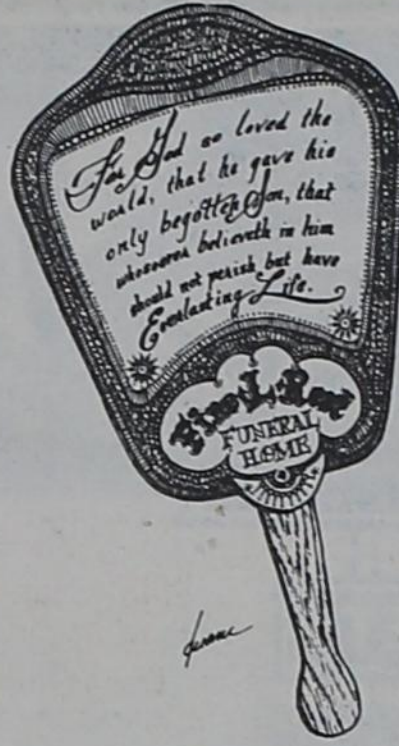 For God so loved the
world, that he gave his
only begotten Son, that
whosoever believeth in him
should not perish but have
Everlasting Life.
FUNERAL
HOME